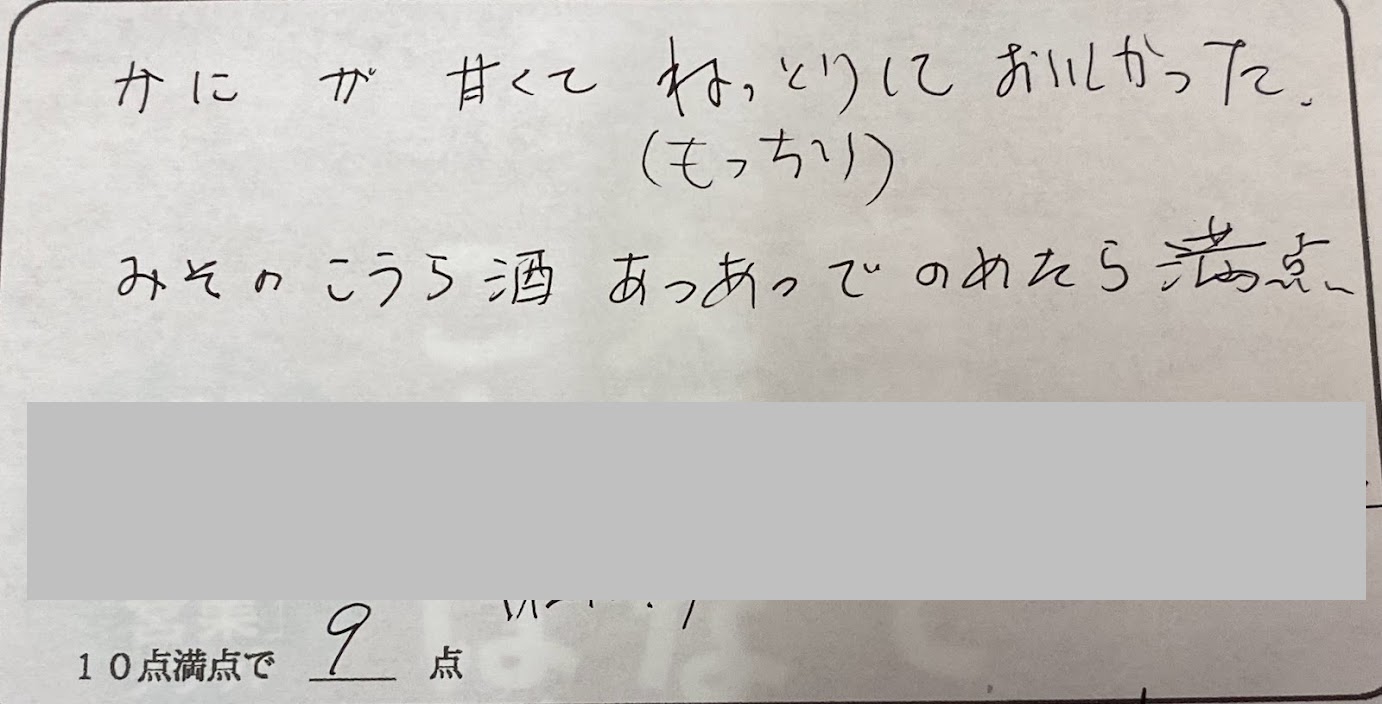 かにが甘くてねっとりしておいしかった。
(もっちり)
みそのこうら酒あつあつでのめたら満点、
10点満点で 9 点